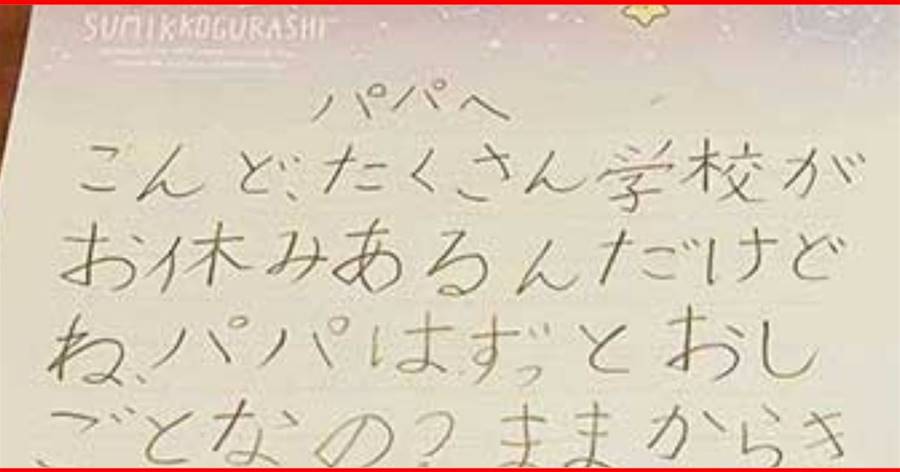 SUMIKKOGURASHI
パパへ
こんど、たくさん学校が
お休みあるんだけど
ね、パパはずっとおし
ごとなの?ままからき